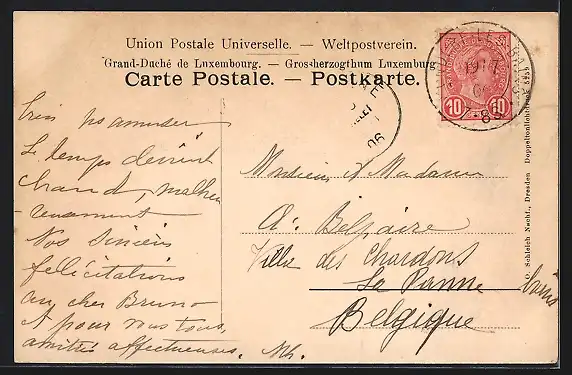 Union Postale Universelle. — Weltpostverein.
Grand-Duché de Luxembourg. — Grossherzogthum Luxemburg
Carte Postale. — Postkarte.
10 10
bien s'amuser
Le temps devient
chaud, malheu-
reusement
Nos sincères
félicitations
au cher Bruno
et pour vous tous,
amitiés affectueuses.
Monsieur & Madame
A. Belpaire
Villa des Chardons
La Panne bains
Belgique
O. Schleich Nachf., Dresden Doppeltonlichtdruck